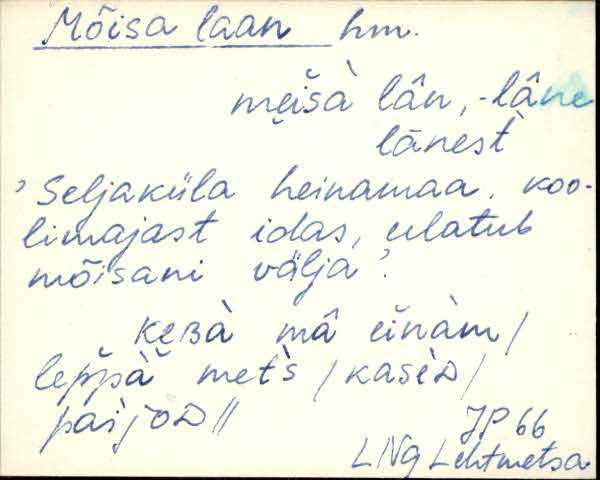 Mõisa laan hm.
mẹišà lân, -lâne
lānest
'Seljaküla heinamaa, koo-
limajast idas, ulatub
mõisani välja'.
keʙà mâ einàm /
leppä̀ mets / kasèᴅ /
paijoᴅ //
JP 66
LNg Lehtmetsa